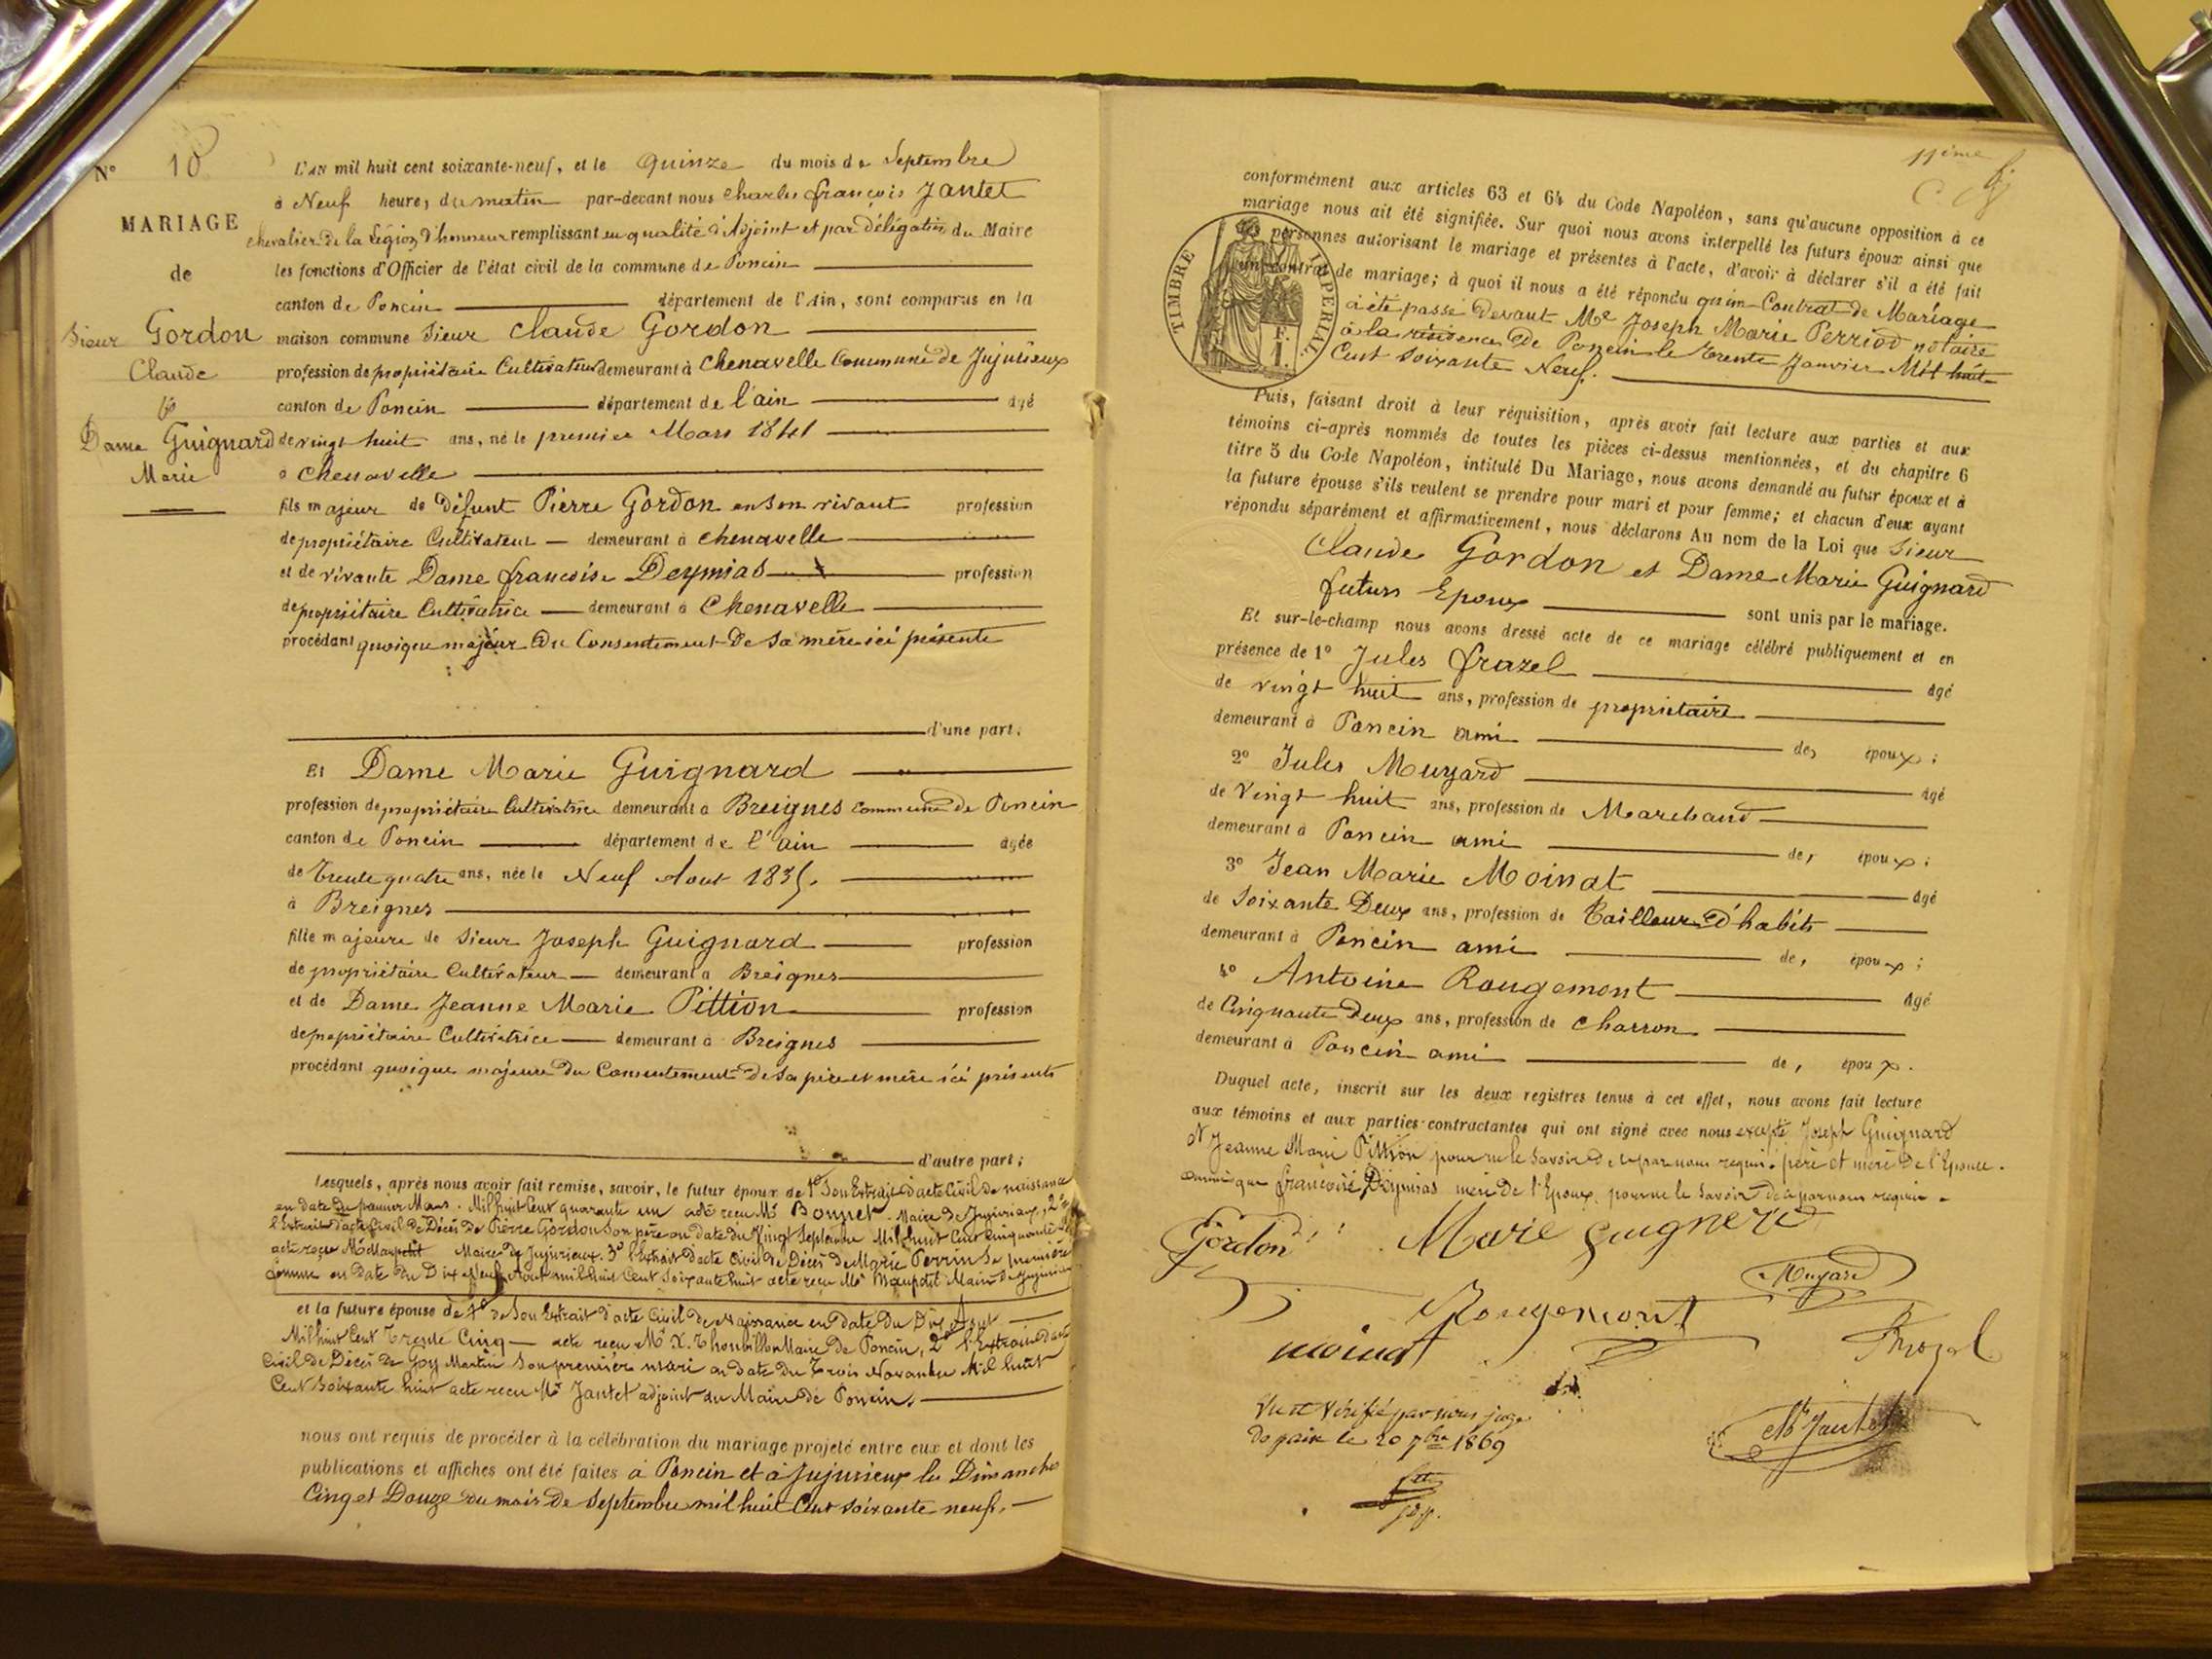 N° 10
MARIAGE
de
Sieur Gordon
Claude
&
Dame Guignard
Marie
L'AN mil huit cent soixante-neuf, et le quinze du mois de Septembre
à Neuf heures du matin par-devant nous Charles françois Jantet
chevalier de la Légion d'honneur remplissant en qualité d'Adjoint et par délégation du Maire
les fonctions d'Officier de l'état civil de la commune de Poncin
canton de Poncin département de l'Ain, sont comparus en la
maison commune Sieur Claude Gordon
profession de propriétaire Cultivateur demeurant à Chenavelle Commune de Jujurieux
canton de Poncin département de l'ain âgé
de vingt huit ans, né le premier Mars 1841
à Chenavelle
fils majeur de Défunt Pierre Gordon en son vivant profession
de propriétaire Cultivateur demeurant à Chenavelle
et de vivante Dame françoise Deymias profession
de propriétaire Cultivatrice demeurant à Chenavelle
procédant quoique majeur du Consentement de sa mère ici présente
d'une part;
Et Dame Marie Guignard
profession de propriétaire Cultivatrice demeurant à Breignes commune de Poncin
canton de Poncin département de l'ain âgée
de Trente quatre ans, née le Neuf Aout 1835.
à Breignes
fille majeure de Sieur Joseph Guignard profession
de propriétaire Cultivateur demeurant à Breignes
et de Dame Jeanne Marie Pittion profession
de propriétaire Cultivatrice demeurant à Breignes
procédant quoique majeure du Consentement de sa père et mère ici présents
d'autre part;
Lesquels, après nous avoir fait remise, savoir, le futur époux de 1° Son Extrait d'acte Civil de naissance
en date du premier Mars Mil huit Cent quarante un acte reçu Mr Bonnet Maire de Jujurieux, 2°
l'Extrait d'acte Civil de Décès de Pierre Gordon Son père en date du Vingt Septembre Mil huit Cent Cinquante
acte reçu Mr Maupetit Maire de Jujurieux. 3° l'Extrait d'acte Civil de Décès de Marie Perrin Sa première
femme en Date du Dix Neuf Aout mil huit Cent Soixante huit acte reçu Mr Maupetit Maire de Jujurieux
et la future épouse de 1° de Son Extrait d'acte Civil de Naissance en date du Dix Aout
Mil huit Cent Trente Cinq acte reçu Mr X. Thoubillon Maire de Poncin, 2° l'Extrait d'acte
Civil de Décès de Goy Martin Son premier mari en date du Trois Novembre Mil huit
Cent Soixante huit acte reçu Mr Jantet adjoint au Maire de Poncin.
nous ont requis de procéder à la célébration du mariage projeté entre eux et dont les
publications et affiches ont été faites à Poncin et à Jujurieux les Dimanches
Cinq et Douze du mois de Septembre mil huit Cent soixante neuf.
11ème
conformément aux articles 63 et 64 du Code Napoléon, sans qu'aucune opposition à ce
mariage nous ait été signifiée. Sur quoi nous avons interpellé les futurs époux ainsi que
les personnes autorisant le mariage et présentes à l'acte, d'avoir à déclarer s'il a été fait
un contrat de mariage; à quoi il nous a été répondu qu'un Contrat de Mariage
a été passé devant Me Joseph Marie Perriod notaire
à la résidence de Poncin le trente Janvier Mil huit
Cent soixante Neuf.
TIMBRE IMPERIAL
1 F.
Puis, faisant droit à leur réquisition, après avoir fait lecture aux parties et aux
témoins ci-après nommés de toutes les pièces ci-dessus mentionnées, et du chapitre 6
titre 5 du Code Napoléon, intitulé Du Mariage, nous avons demandé au futur époux et à
la future épouse s'ils veulent se prendre pour mari et pour femme; et chacun d'eux ayant
répondu séparément et affirmativement, nous déclarons Au nom de la Loi que Sieur
Claude Gordon et Dame Marie Guignard
futurs Epoux sont unis par le mariage.
Et sur-le-champ nous avons dressé acte de ce mariage célébré publiquement et en
présence de 1° Jules frazel âgé
de vingt huit ans, profession de propriétaire
demeurant à Poncin ami des époux;
2° Jules Muyard âgé
de Vingt huit ans, profession de Marchand
demeurant à Poncin ami des époux;
3° Jean Marie Moinat âgé
de Soixante Deux ans, profession de Tailleur d'habits
demeurant à Poncin ami des époux;
4° Antoine Rougemont âgé
de Cinquante Deux ans, profession de Charron
demeurant à Poncin ami des époux.
Duquel acte, inscrit sur les deux registres tenus à cet effet, nous avons fait lecture
aux témoins et aux parties contractantes qui ont signé avec nous excepté Joseph Guignard
et Jeanne Marie Pittion pour ne le Savoir de ce par nous requis. père et mère de l'Epouse.
ainsi que françoise Deymias mère de l'Epoux pour ne le Savoir de ce par nous requise.
Gordon Marie guignerd
Muyard
Rougemont
moinat Frazel
Vu et Vérifié par nous juge
de paix le 20 7bre 1869
Jantet